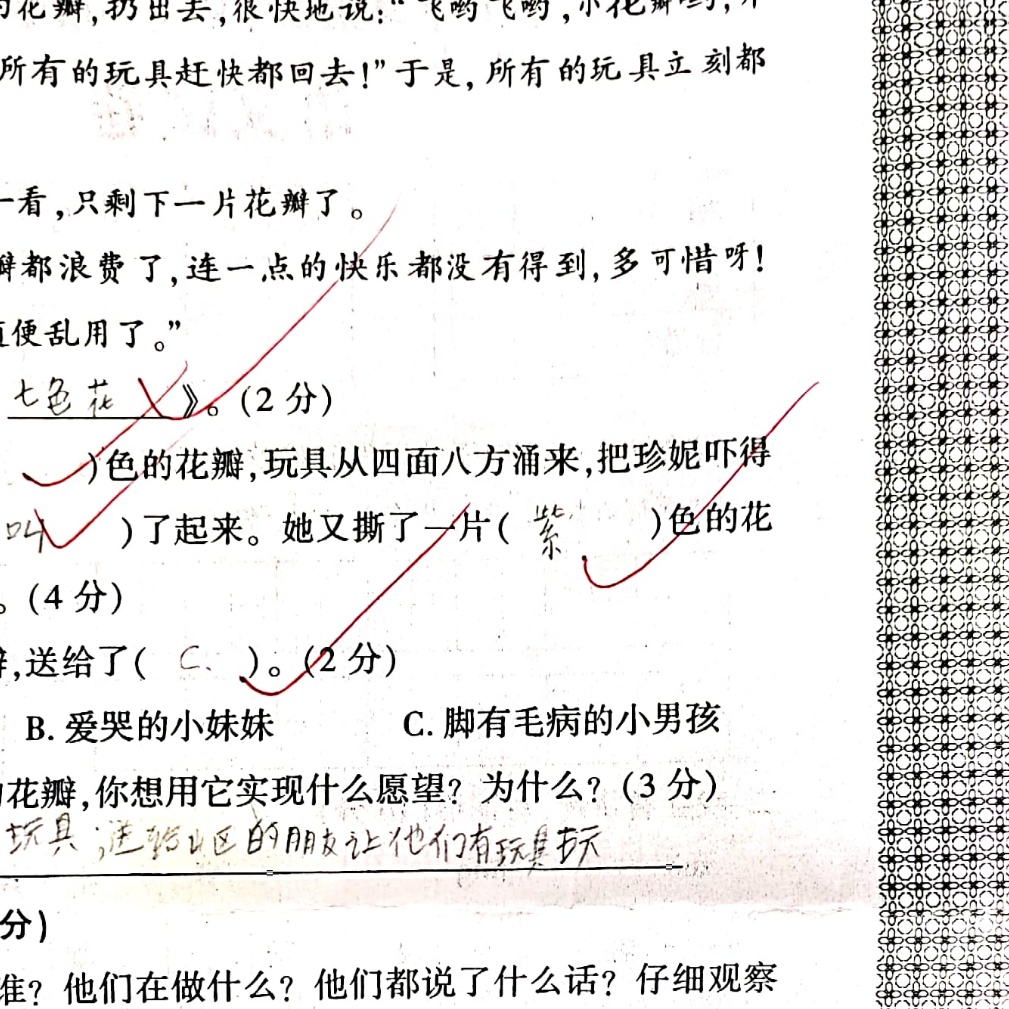 花瓣,扔出去,很快地说:“飞哟飞哟,小花瓣哟,
所有的玩具赶快都回去!”于是,所有的玩具立刻都
一看,只剩下一片花瓣了。
瓣都浪费了,连一点的快乐都没有得到,多可惜呀!
便乱用了。”
七色花 》。(2分)
)色的花瓣,玩具从四面八方涌来,把珍妮吓得
叫 )了起来。她又撕了一片( 紫 )色的花
。(4分)
,送给了( C. )。(2分)
B. 爱哭的小妹妹 C. 脚有毛病的小男孩
花瓣,你想用它实现什么愿望?为什么?(3分)
玩具;送给山区的朋友让他们有玩具玩
分)
谁?他们在做什么?他们都说了什么话?仔细观察